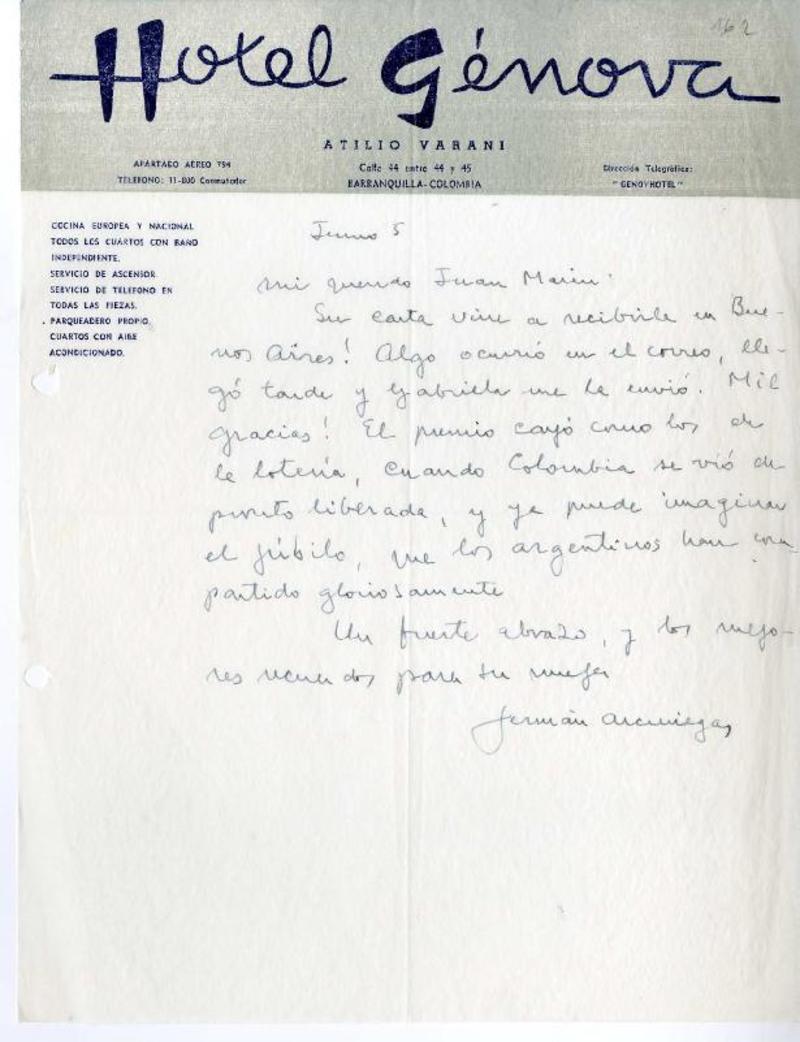 162
Hotel Génova
ATILIO VARANI
APARTADO AEREO 794
TELEFONO: 11-800 Conmutador
Calle 44 entre 44 y 45
BARRANQUILLA-COLOMBIA
Dirección Telegráfica:
"GENOVHOTEL"
COCINA EUROPEA Y NACIONAL
TODOS LOS CUARTOS CON BAÑO
INDEPENDIENTE.
SERVICIO DE ASCENSOR
SERVICIO DE TELEFONO EN
TODAS LAS PIEZAS.
PARQUEADERO PROPIO.
CUARTOS CON AIRE
ACONDICIONADO.
Junio 5
Mi querido Juan Marin:
Su carta vine a recibirla en Bue-
nos Aires! Algo ocurrió en el correo, lle-
gó tarde y Gabriela me la envió. Mil
gracias! El premio cayó como los de
la lotería, cuando Colombia se vió de
pronto liberada, y ya puede imaginar
el júbilo, que los argentinos han com
partido gloriosamente
Un fuerte abrazo, y los mejo-
res recuerdos para su mujer
Germán Arciniegas